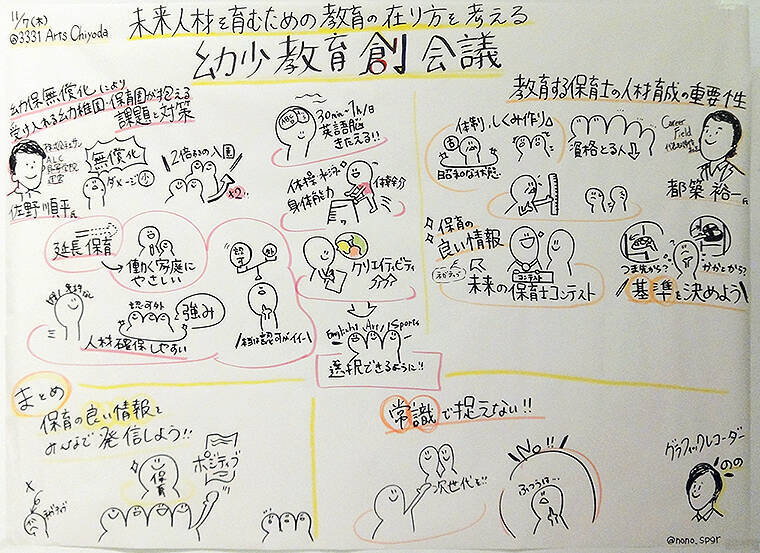 11/7(木)
@3331 Arts Chiyoda
未来人材を育むための教育の在り方を考える
幼少教育創会議
幼保無償化により
受け入れる幼稚園・保育園が抱える
課題と対策
佐野順平氏
無償化
ダメージ小
2倍もの入園
x2
延長保育
働く家庭に
やさしい
認可外
強み
人材確保しやすい
30min~1h/日
英語脳
きたえる!!
身体能力
クリエイティビティ
English/Art/Sports
選択できるように!!
教育する保育士の人材育成の重要性
体制、しくみ作り
昭和な状態
資格とる人↓
Career
Field
都築裕一氏
保育の
良い情報
ネガティブ
コンテスト
未来の保育士コンテスト
つま先から?
かかとから?
基準を決めよう
まとめ
保育の良い情報を
みんなで発信しよう!!
ネガティブ
保育
ポジティブ
常識で捉えない!!
次世代を!!
No!!
ふつうは…
グラフィックレコーダー
のの
@nono_spgr